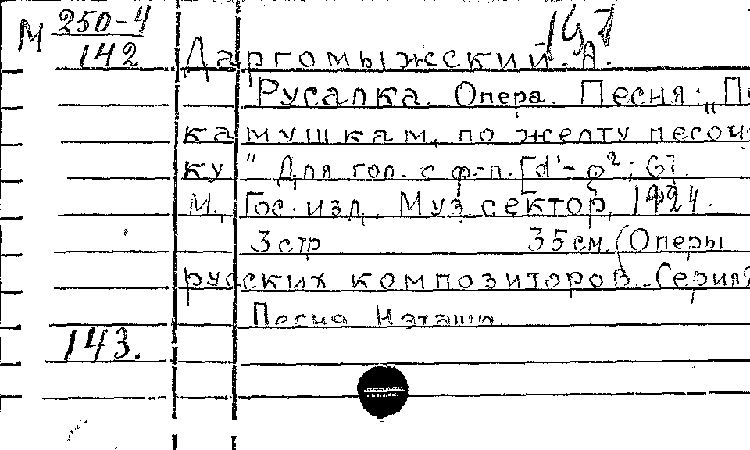 М 250-4
142
197
Даргомыжский. А.
Русалка. Опера. Песня: „По
камушкам, по желту песоч
ку" Для гол. с ф-п. [d'-g²; G].
М., Гос. изд. Муз сектор, 1924.
3 стр 35 см. (Оперы
русских композиторов. Серия
Песня Наташи
143.